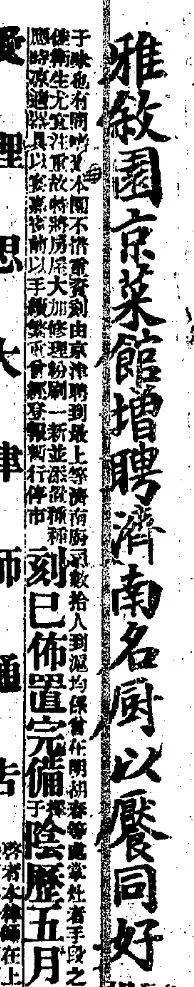 雅敘園京菜館增聘濟南名厨以饜同好
于味也有同嗜焉本園不惜重資刻由京津聘到最上等濟南厨司數拾人到滬均係曾在明湖春等處掌灶者手段之
佳衛生尤宜注重故特將房屋大加修理粉刷一新並添置種種
應時器具以宴嘉賓前以手續繁重曾經登報暫行停市
刻已佈置完備擇于陰歷五月
愛理思大律師通告
啓者本律師在上